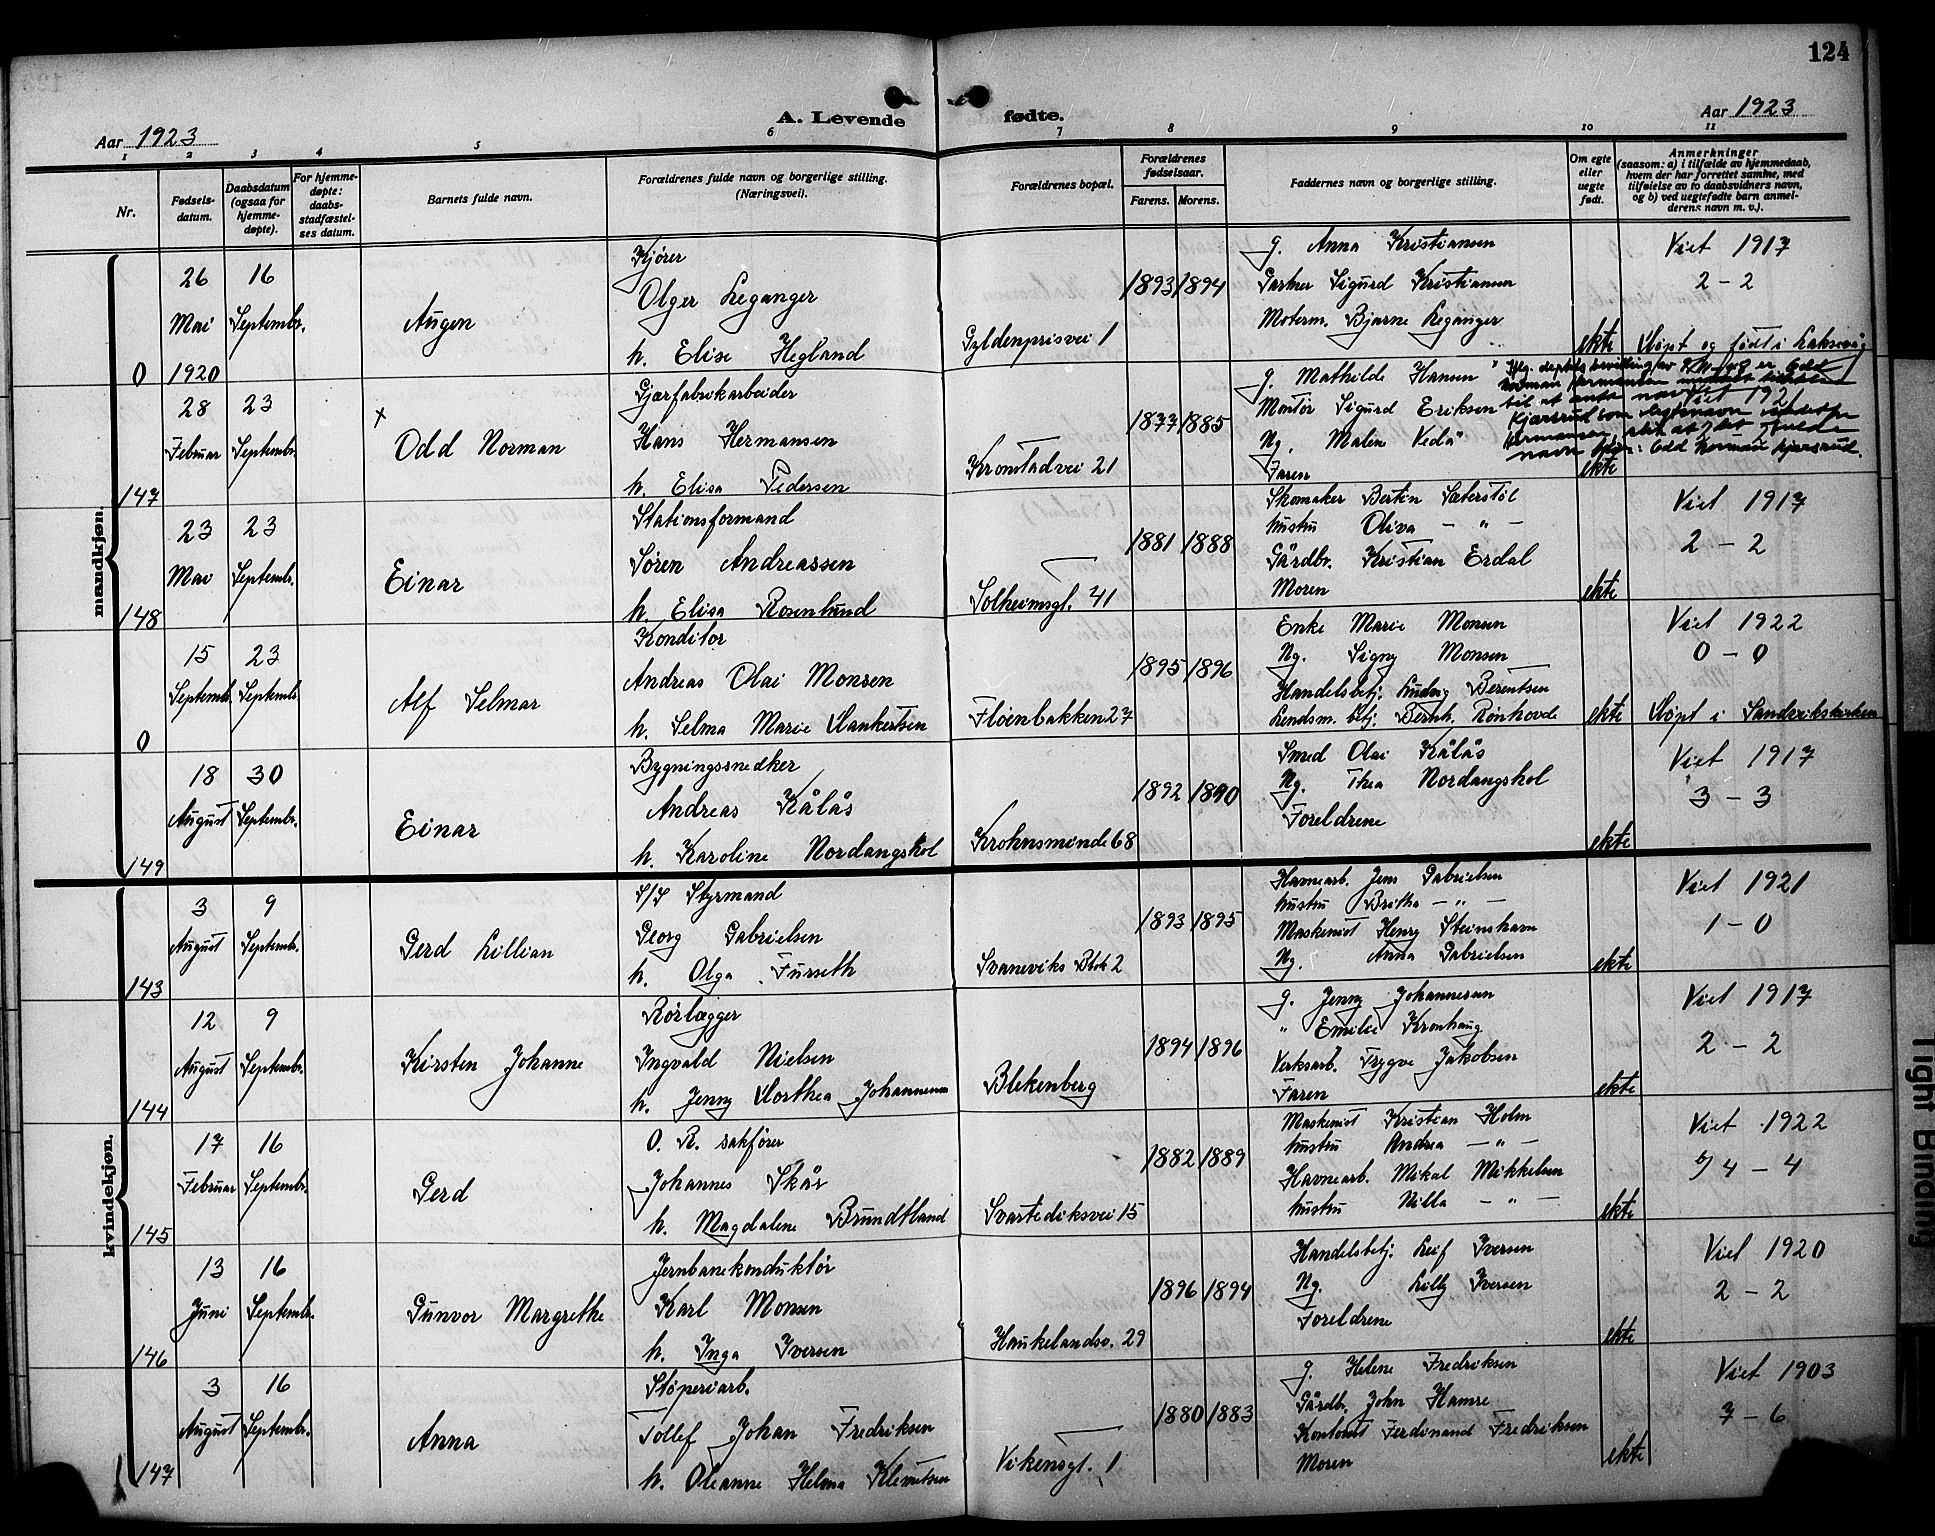 124
Aar 1923
A. Levende fødte.
Aar 1923
1 2 3 4 5 6 7 8 9 10 11
Nr.
Fødsels-
datum.
Daabsdatum
(ogsaa for
hjemme-
døpte).
For hjemme-
døpte:
daabs-
stadfæstel-
ses datum.
Barnets fulde navn.
Forældrenes fulde navn og borgerlige stilling.
(Næringsvei).
Forældrenes bopæl.
Forældrenes
fødselsaar.
Farens. Morens.
Faddernes navn og borgerlige stilling.
Om egte
eller
uegte
født.
Anmerkninger
(saasom: a) i tilfælde av hjemmedaab,
hvem der har forrettet samme, med
tilføielse av to daabsvidners navn,
og b) ved uegtefødte barn anmel-
derens navn m. v.).
mandkjøn.
0
26
Mai
1920
16
Septembr.
Augen
Kjører
Olger Leganger
h. Elise Hegland
Gyldenprisvei 1
1893 1894
g. Anna Kristiansen
Gartner Sigurd Kristiansen
Moterm. Bjarne Leganger
ekte
Viet 1917
2 - 2
Døpt og født i Laksevåg
147
28
Februar
23
Septembr.
x
Odd Norman
Gjærfabrikarbeider
Hans Hermansen
h. Elisa Pedersen
Kronstadvei 21
1877 1885
g. Mathilde Hansen
Montør Sigurd Eriksen
Ng. Malene Vedå
Faren
ekte
Viet 1921
til at anta navnet
Kjærsrud som slegtsnavn istedetfor
Hermansen, slik at det fulde
navn blir: Odd Norman Kjærsrud.
148
23
Mai
23
Septembr.
Einar
Stationsformand
Søren Andreassen
h. Elisa Rosenlund
Solheimsgt. 41
1881 1888
Skomaker Bertin Sæterstøl
hustru Oliva - " -
Gårdbr. Kristian Erdal
Moren
ekte
Viet 1917
2 - 2
0
15
Septembr.
23
Septembr.
Alf Selmar
Konditor
Andreas Olai Monsen
h. Selma Marie Dankertsen
Fløenbakken 27
1895 1896
Enke Marie Monsen
Ng. Signy Monsen
Handelsbetj. Ludvig Berentsen
Lendsm. betj. Bernh. Rønhovde
ekte
Viet 1922
0 - 0
Døpt i Sandvikskirken
149
18
August
30
Septembr.
Einar
Bygningssnedker
Andreas Kålås
h. Karoline Nordangshol
Krohnsminde 68
1892 1890
Smed Olai Kålås
Ng. Thea Nordangshol
Foreldrene
ekte
Viet 1917
3 - 3
kvindekjøn.
143
3
August
9
Septembr.
Gerd Lillian
S/S Styrmand
Georg Gabrielsen
h. Olga Furseth
Svaneviks Blok 2
1893 1895
Havnearb. Jens Gabrielsen
hustru Britha - " -
Maskenist Henry Steinsham
Ng. Anna Gabrielsen
ekte
Viet 1921
1 - 0
144
12
August
9
Septembr.
Kirsten Johanne
Rørlægger
Ingvald Nielsen
h. Jenny Dorthea Johannesen
Blekenberg
1894 1896
g. Jenny Johannesen
" Emilie Kronhaug
Verksarb. Trygve Jakobsen
Faren
ekte
Viet 1917
2 - 2
145
17
Februar
16
Septembr.
Gerd
O. R. sakfører
Johannes Skår
h. Magdalene Brundtland
Svartediksvei 15
1882 1889
Maskenist Kristian Holm
hustru Andrea - " -
Havnearb. Mikal Mikkelsen
hustru Nilla - " -
ekte
Viet 1922
4 - 4
146
13
Juni
16
Septembr.
Gunvor Margrethe
Jernbanekonduktør
Karl Monsen
h. Inga Iversen
Haukelandsv. 29
1896 1894
Handelsbetj. Leif Iversen
Ng. Lilly Iversen
Foreldrene
ekte
Viet 1920
2 - 2
147
3
August
16
Septembr.
Anna
Støperiarb.
Tollef Johan Fredriksen
h. Oleanne Helma Klemetsen
Vikensgt. 1
1880 1883
g. Helene Fredriksen
Gårdb. John Hamre
Kontorist Ferdinand Fredriksen
Moren
ekte
Viet 1903
7 - 6
Tight Binding